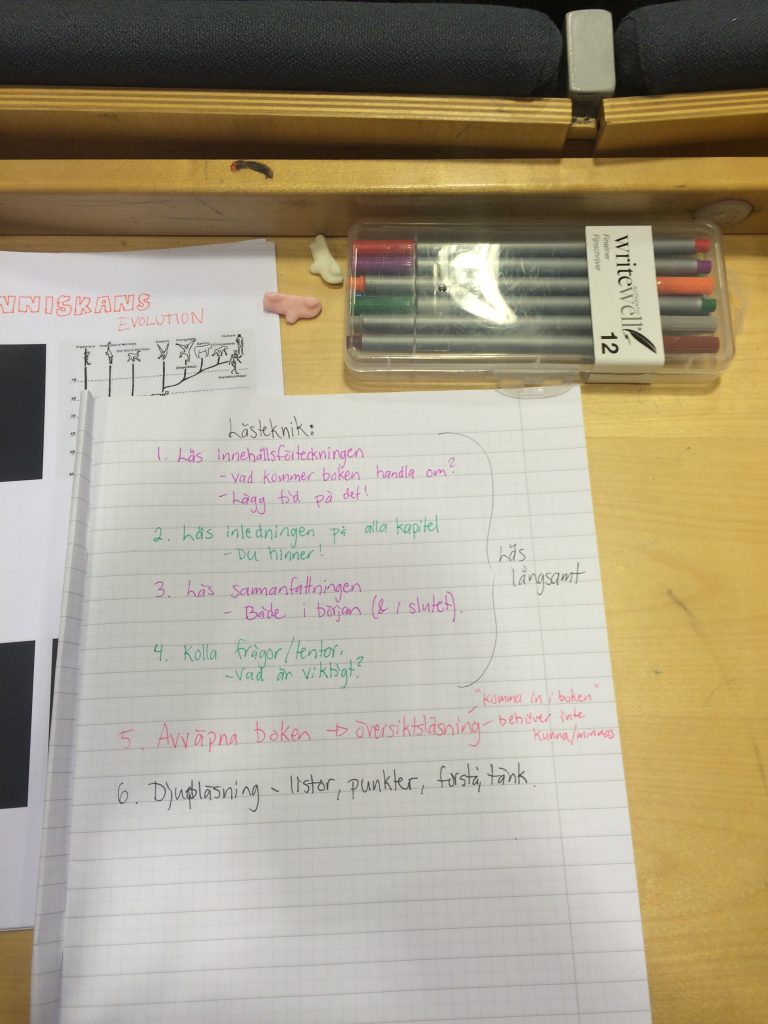 NNISKANS
EVOLUTION
writewell
Fineliner
Fijnschrijver
12
Lästeknik:
1. Läs innehållsförteckningen
- Vad kommer boken handla om?
- Lägg tid på det!
2. Läs inledningen på alla kapitel
- Du hinner!
3. Läs samanfattningen
- Både i början (& i slutet).
4. Kolla frågor/tentor.
- Vad är viktigt?
Läs
långsamt
5. Avväpna boken → översiktsläsning
- "Komma in i boken"
- behöver inte
kunna/minnas
6. Djupläsning - listor, punkter, förstå, tänk.